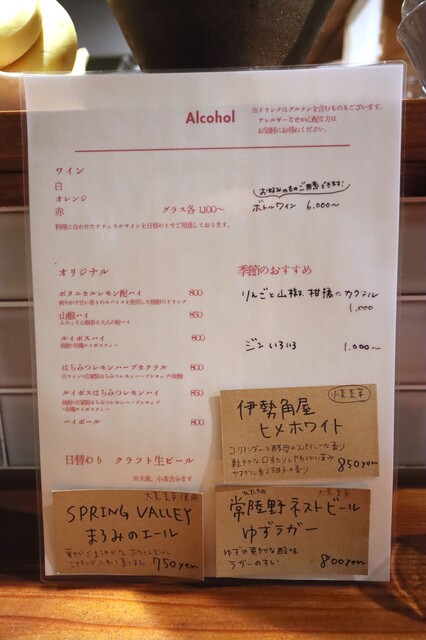 Alcohol
※ドリンクはグルテンを含むものもございます。
アレルギー等ご心配な方は
お気軽にお尋ねください。
ワイン
白
オレンジ
赤
グラス各 1,100〜
料理に合わせたナチュラルワインを日替わりでご用意しております。
お好みのものご用意できます！
ボトルワイン 6,000〜
オリジナル
ボタニカルレモン酎ハイ 800
山椒ハイ 850
ルイボスハイ 800
はちみつレモンハーブカクテル 800
ルイボスはちみつレモンハイ 850
ハイボール 800
季節のおすすめ
りんごと山椒、柑橘のカクテル
1,000
ジンいろいろ 1,000〜
日替わり クラフト生ビール
※大麦、小麦含みます
小麦麦芽
伊勢角屋
ヒメホワイト
コリアンダーと酵母のスパイシーな香り
850yen
大麦麦芽使用
SPRING VALLEY
まろみのエール
750yen
大麦麦芽
常陸野ネストビール
ゆずラガー
ゆずの爽やかな酸味
ラガーのキレ！
800yen